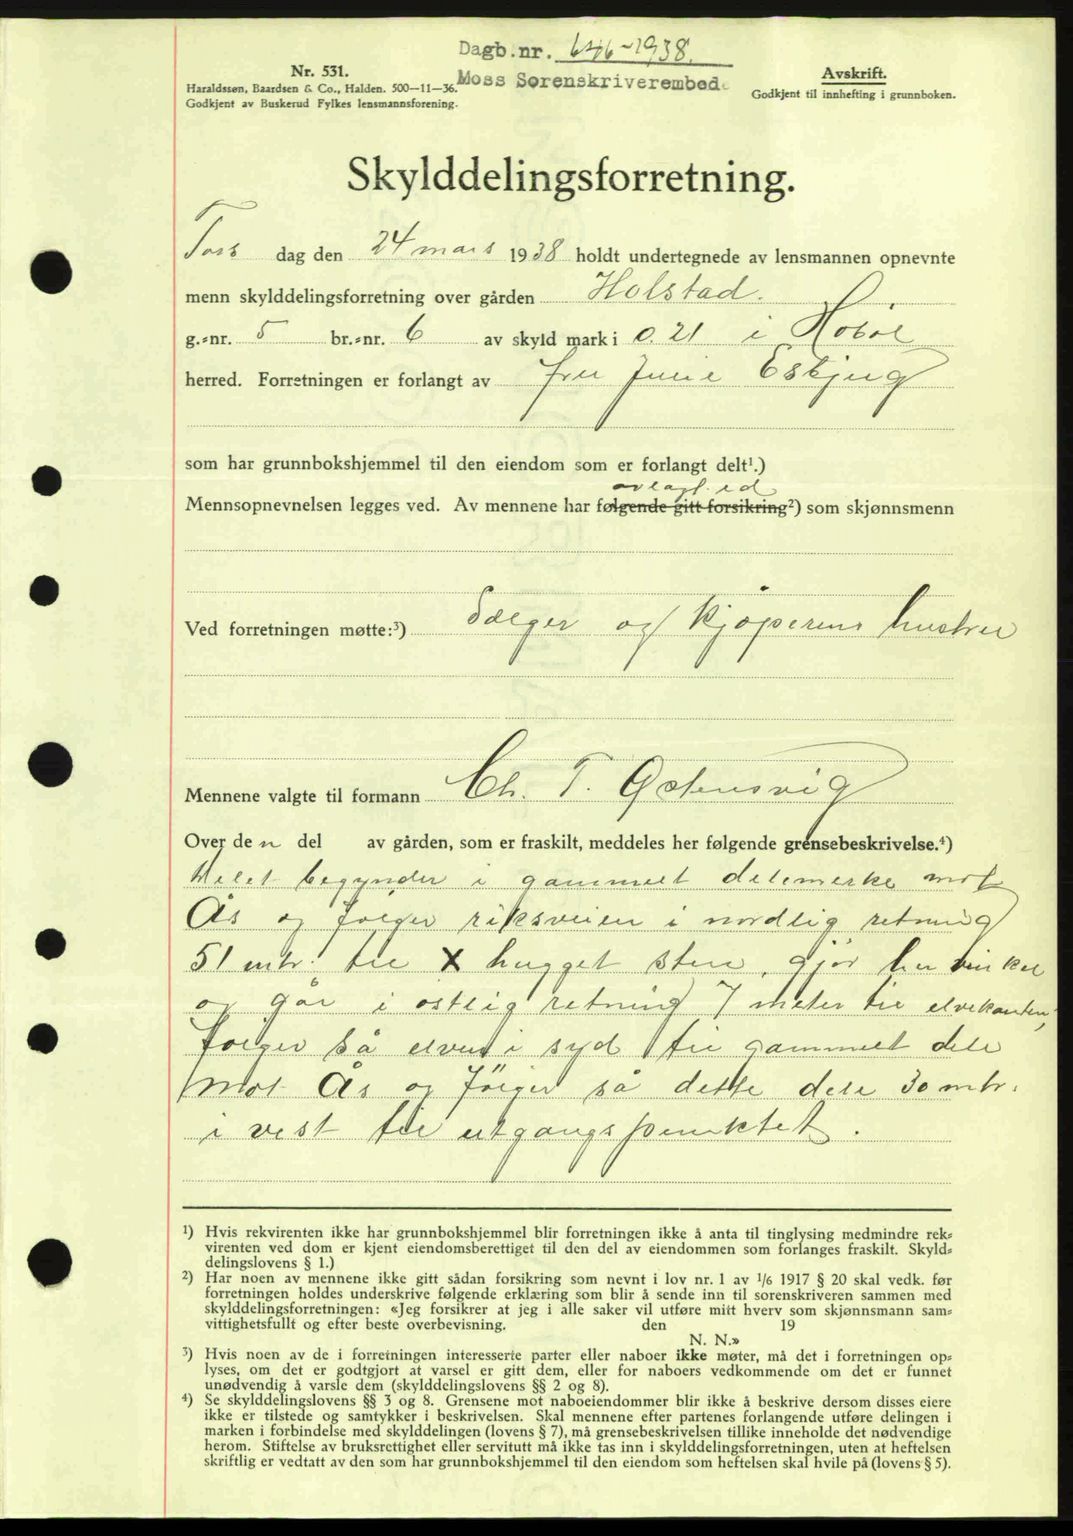 Dagb.nr. 646-1938.
Moss Sorenskriverembede
Nr. 531.
Haraldssøn, Baardsen & Co., Halden. 500—11—36.
Godkjent av Buskerud Fylkes lensmannsforening.
Avskrift.
Godkjent til innhefting i grunnboken.
Skylddelingsforretning.
Tors dag den 24 mars 1938 holdt undertegnede av lensmannen opnevnte
menn skylddelingsforretning over gården Holstad.
g.-nr. 5 br.-nr. 6 av skyld mark i 0.21 i Hobøl
herred. Forretningen er forlangt av fru Julie Esbjug
som har grunnbokshjemmel til den eiendom som er forlangt delt¹.)
avlagt ed
Mennsopnevnelsen legges ved. Av mennene har følgende gitt forsikring²) som skjønnsmenn
Ved forretningen møtte:³) Sælger og kjøperens hustru
Mennene valgte til formann Ch. T. Østensvig
Over den del av gården, som er fraskilt, meddeles her følgende grensebeskrivelse.⁴)
Delet begynder i gammelt delemerke mot
Ås og følger riksveien i nordlig retning
51 mtr. til X hugget sten, gjør her vinkel
og går i østlig retning 7 meter til elvekanten,
følger så elven i syd til gammelt dele
mot Ås og følger så dette dele 30 mtr.
i vest til utgangspunktet.
¹) Hvis rekvirenten ikke har grunnbokshjemmel blir forretningen ikke å anta til tinglysing medmindre rek-
virenten ved dom er kjent eiendomsberettiget til den del av eiendommen som forlanges fraskilt. Skyld-
delingslovens § 1.)
²) Har noen av mennene ikke gitt sådan forsikring som nevnt i lov nr. 1 av 1/6 1917 § 20 skal vedk. før
forretningen holdes underskrive følgende erklæring som blir å sende inn til sorenskriveren sammen med
skylddelingsforretningen: «Jeg forsikrer at jeg i alle saker vil utføre mitt hverv som skjønnsmann sam-
vittighetsfullt og efter beste overbevisning. den 19
N. N.»
³) Hvis noen av de i forretningen interesserte parter eller naboer ikke møter, må det i forretningen op-
lyses, om det er godtgjort at varsel er gitt dem, eller for naboers vedkommende om det er funnet
unødvendig å varsle dem (skylddelingslovens §§ 2 og 8).
⁴) Se skylddelingslovens §§ 3 og 8. Grensene mot naboeiendommer blir ikke å beskrive dersom disses eiere
ikke er tilstede og samtykker i beskrivelsen. Skal mennene efter partenes forlangende utføre delingen i
marken i forbindelse med skylddelingen (lovens § 7), må grensebeskrivelsen tillike inneholde det nødvendige
herom. Stiftelse av bruksrettighet eller servitutt må ikke tas inn i skylddelingsforretningen, uten at heftelsen
skriftlig er vedtatt av den som har grunnbokshjemmel til den eiendom som heftelsen skal hvile på (lovens § 5).